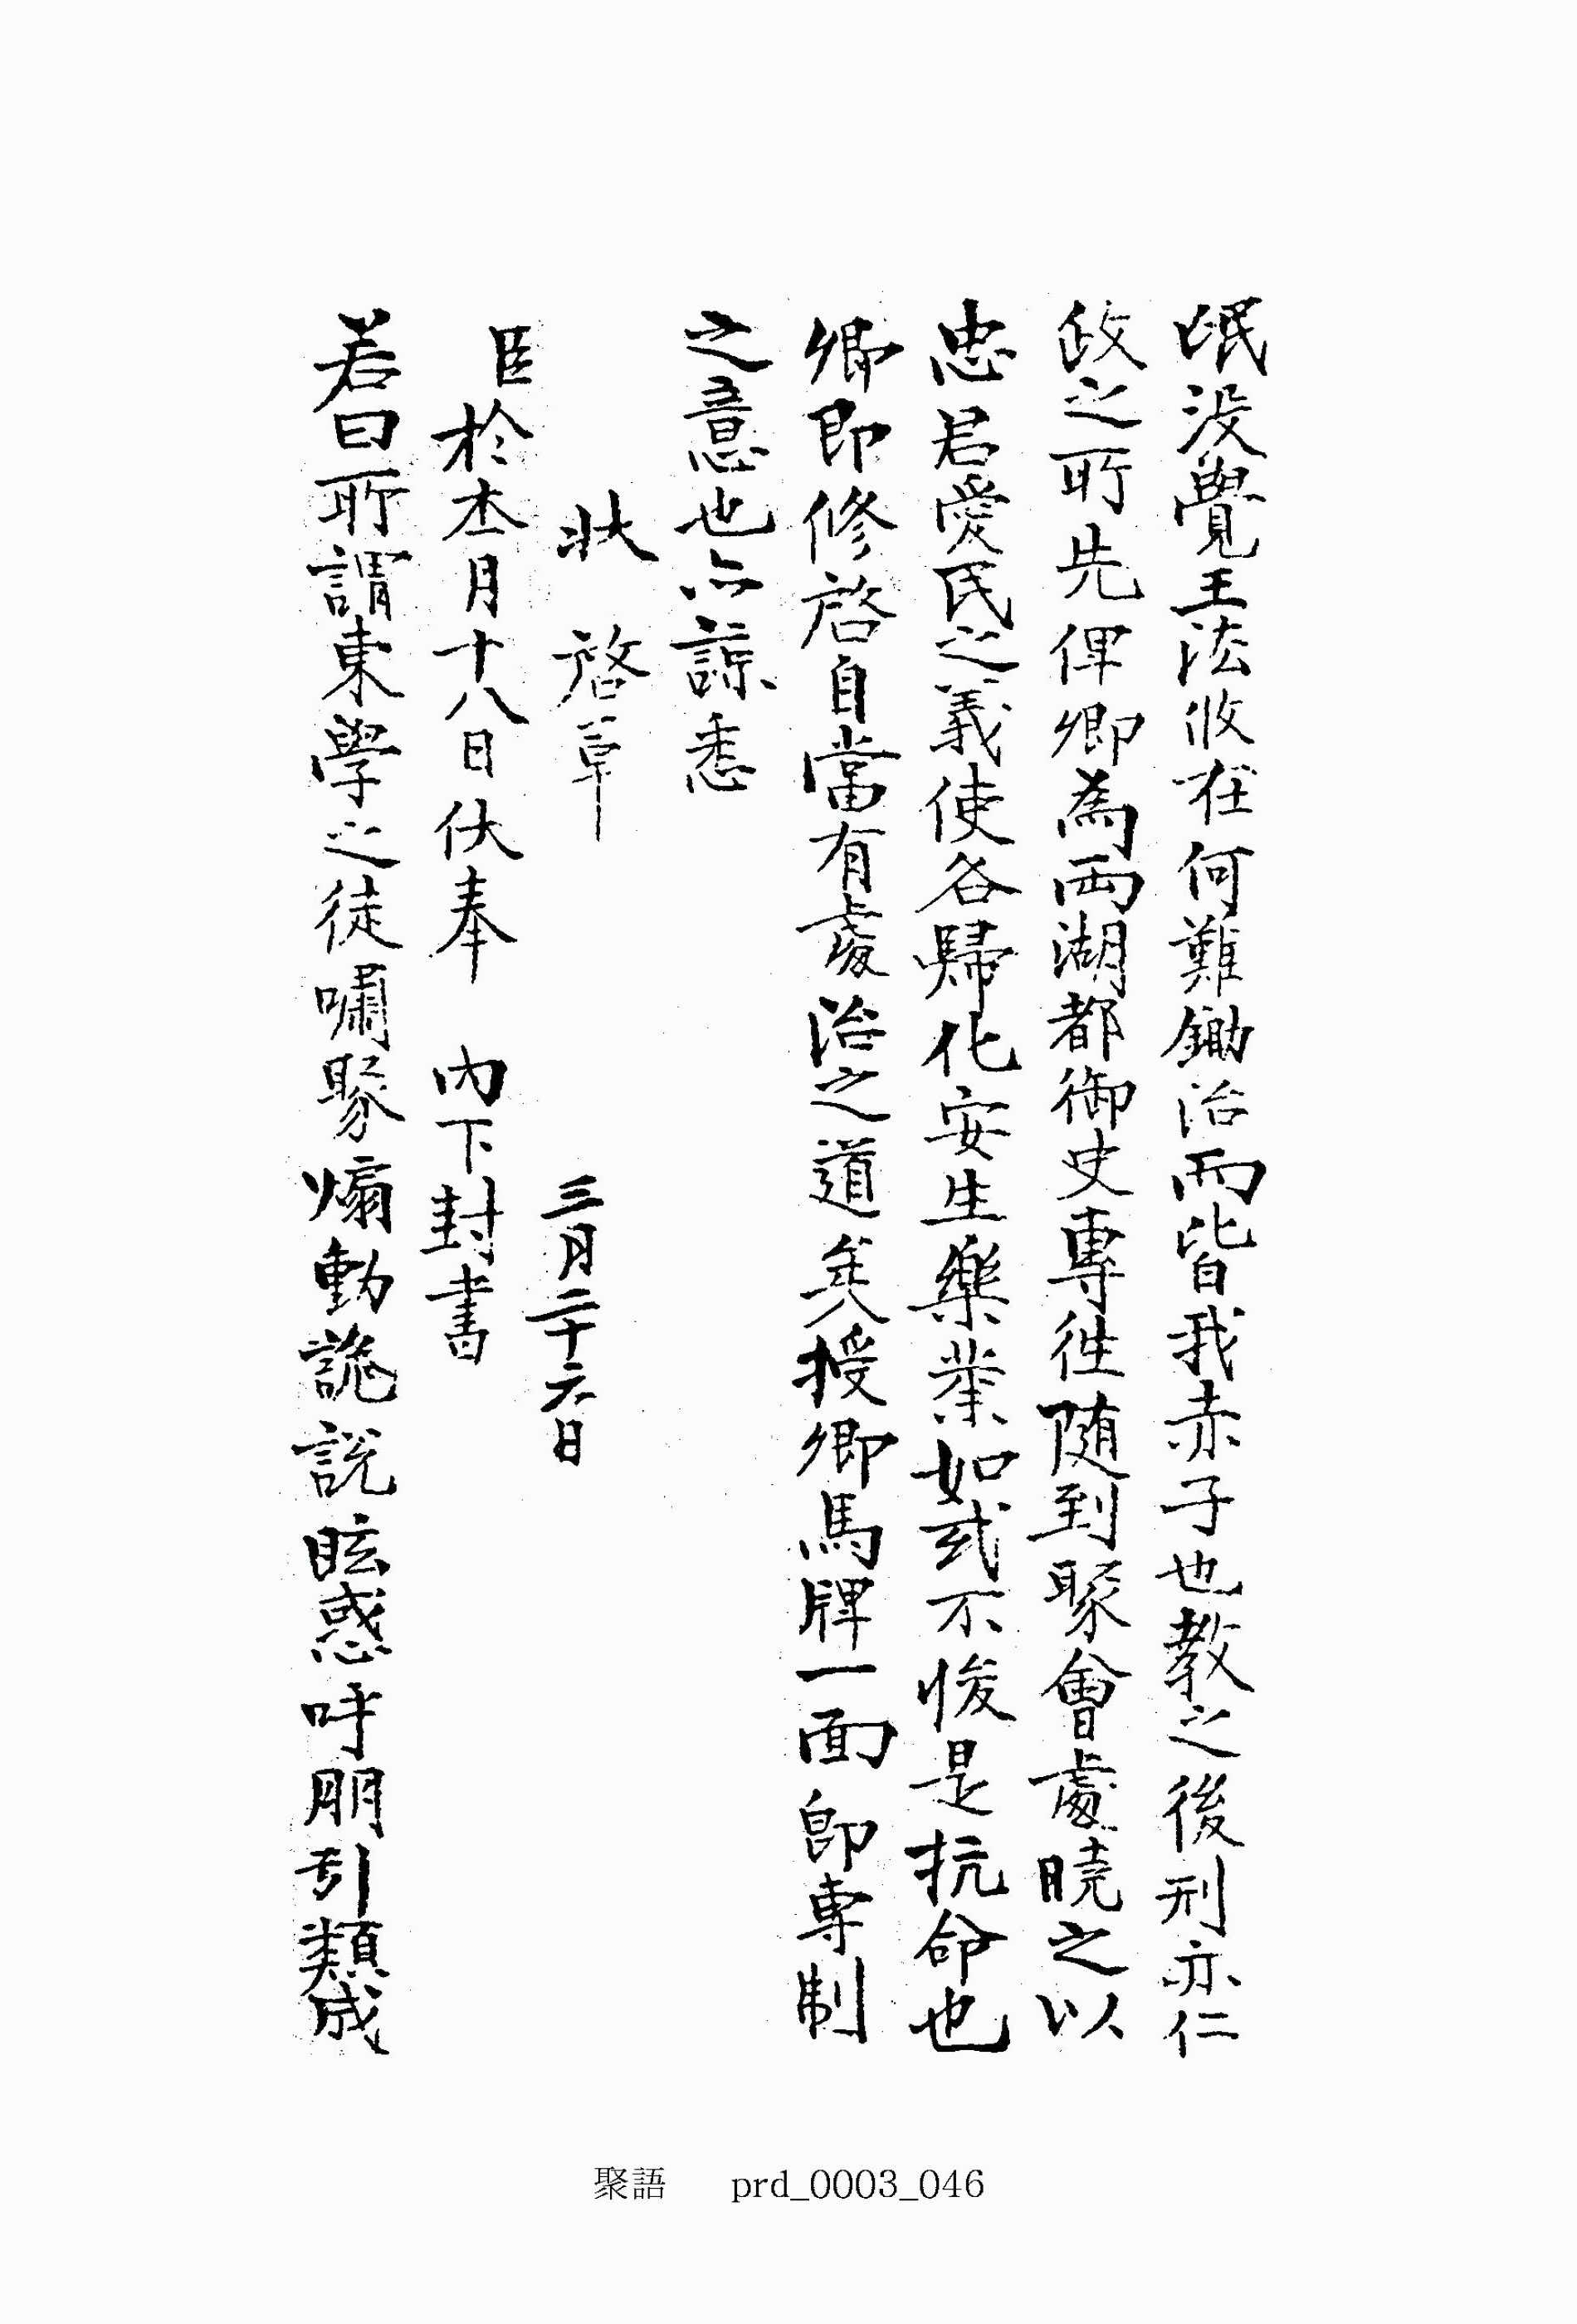 泯没覺王法攸在何難鋤治而皆我赤子也教之後刑亦仁
政之所先俾卿爲兩湖都御史專徃随到聚會處曉之以
忠君愛民之義使各歸化安生樂業如或不悛是抗命也
卿即修啓自當有處治之道矣授卿馬牌一面卽專制
之意也亦諒悉
狀 啓草 三月二十六日
臣於本月十八日伏奉 內下封書
若曰所謂東學之徒嘯聚煽動詭説眩惑呼朋引類成
聚語 prd_0003_046